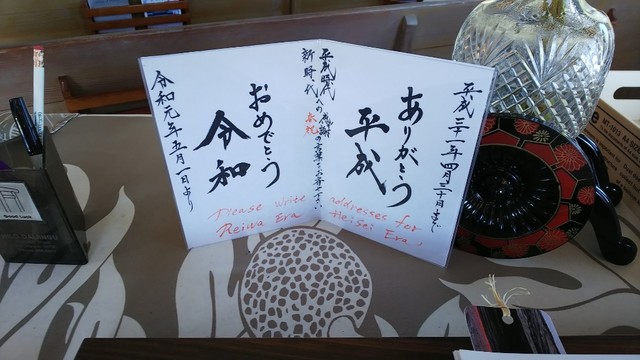 平成三十一年四月三十日まで
ありがとう
平成
平成時代への感謝
新時代への奉祝の言葉をお寄せ下さい
おめでとう
令和
令和元年五月一日より
Please write addresses for
Reiwa Era
Heisei Era,
Good Luck